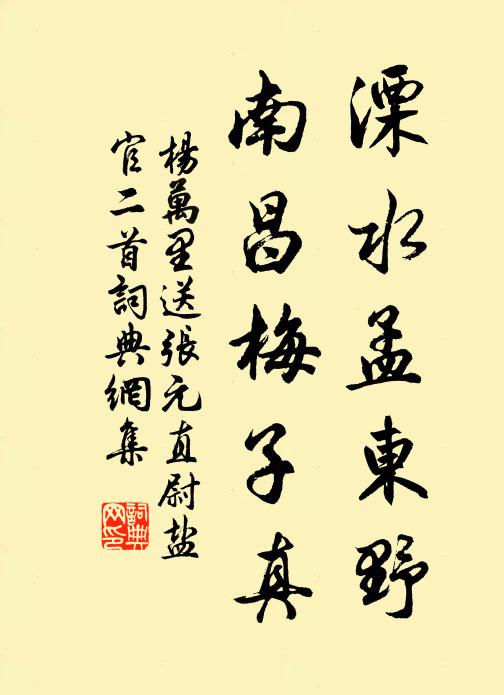 溧水孟東野
南昌梅子真
楊萬里送張元直尉盐
官二首詞典網集
詞典
网印